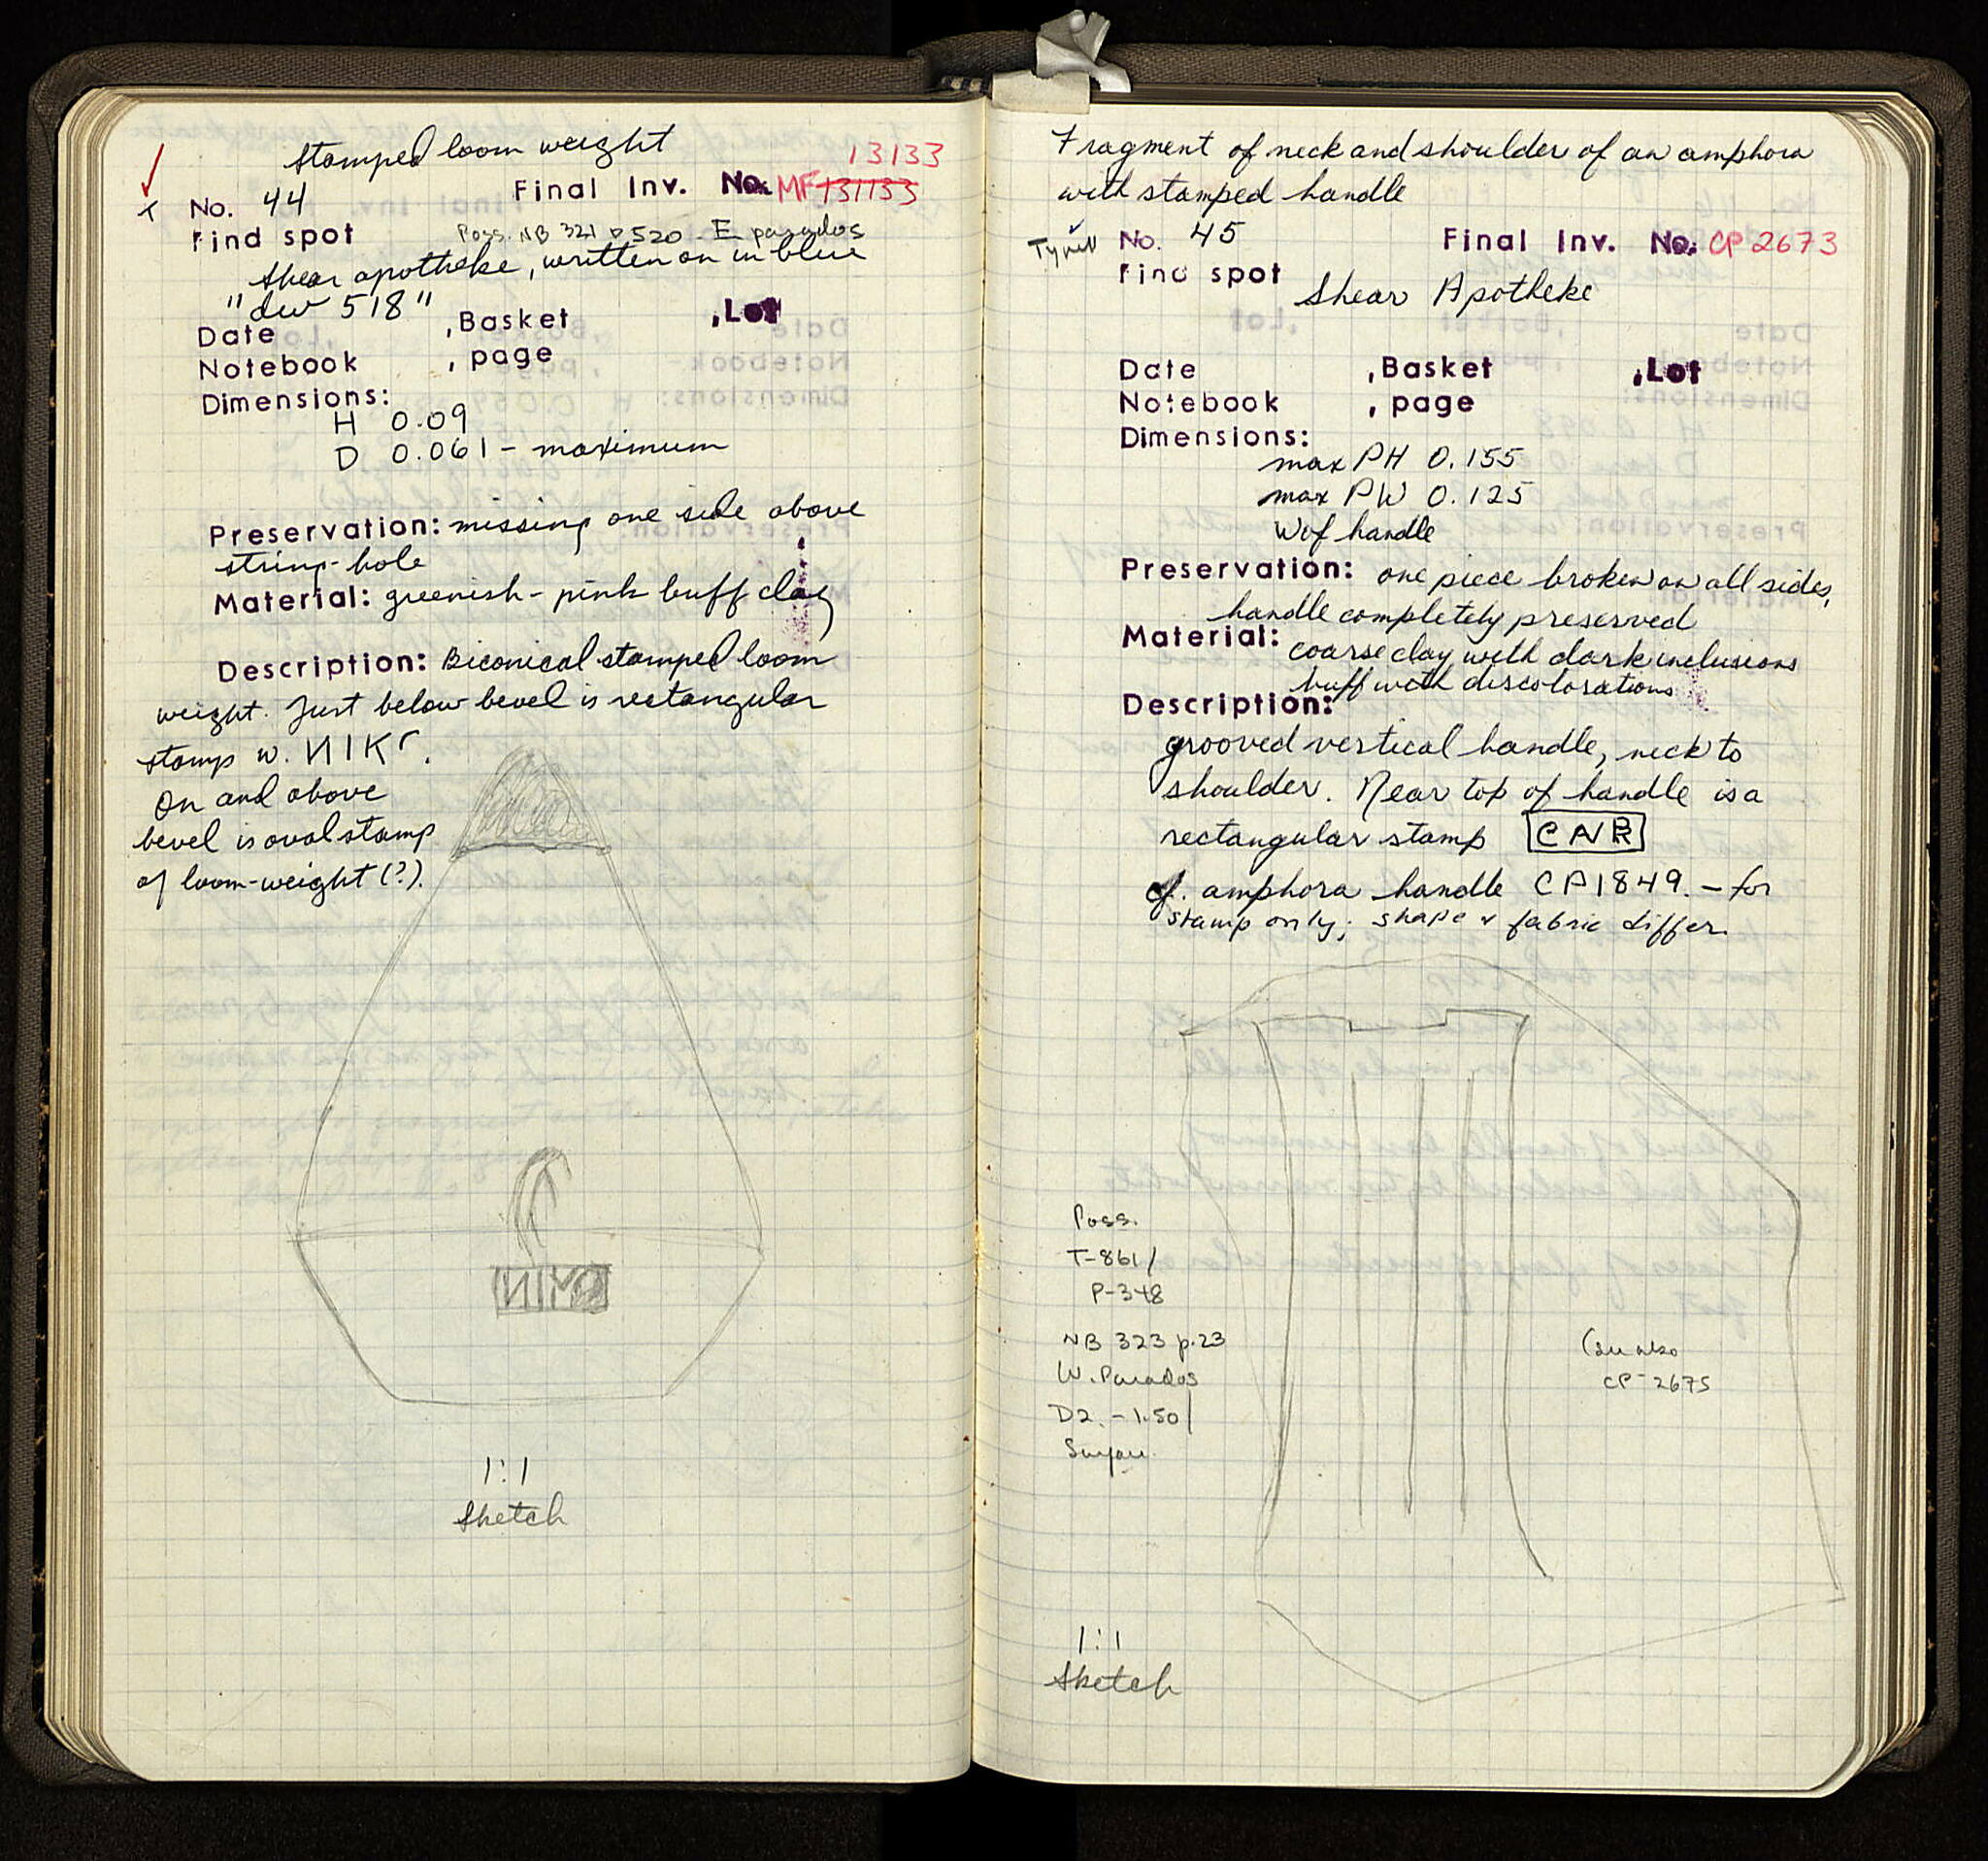 Stamped loom weight
13133
No. 44 Final Inv. No. MF 131133
Find spot Poss. NB 321 p 520 - E. parados
Shear apotheke, written on in blue
"dw 518"
Date , Basket , Lot
Notebook , page
Dimensions:
H 0.09
D 0.061 - maximum
Preservation: missing one side above
string-hole
Material: greenish-pink buff clay
Description: Biconical stamped loom
weight. Just below bevel is rectangular
stamp w. ИIΚΓ.
On and above
bevel is oval stamp
of loom-weight (?).
1:1
Sketch
Fragment of neck and shoulder of an amphora
with stamped handle
No. 45 Final Inv. No. CP 2673
Find spot
Shear Apotheke
Date , Basket , Lot
Notebook , page
Dimensions:
max PH 0.155
max PW 0.125
W of handle
Preservation: one piece broken on all sides,
handle completely preserved
Material: coarse clay with dark inclusions
buff with discolorations
Description:
grooved vertical handle, neck to
shoulder. Near top of handle is a
rectangular stamp
cf. amphora handle CP1849. - for
stamp only; shape & fabric differ.
Poss.
T-861/
P-348
NB 323 p.23
W. Parados
D2. - 1.50/
(see also
CP-2675
1:1
Sketch